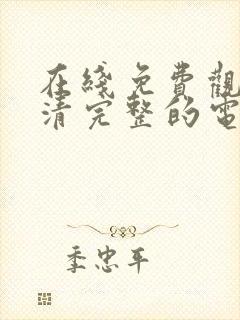 在綫免費觀
清完整的電
季忠平